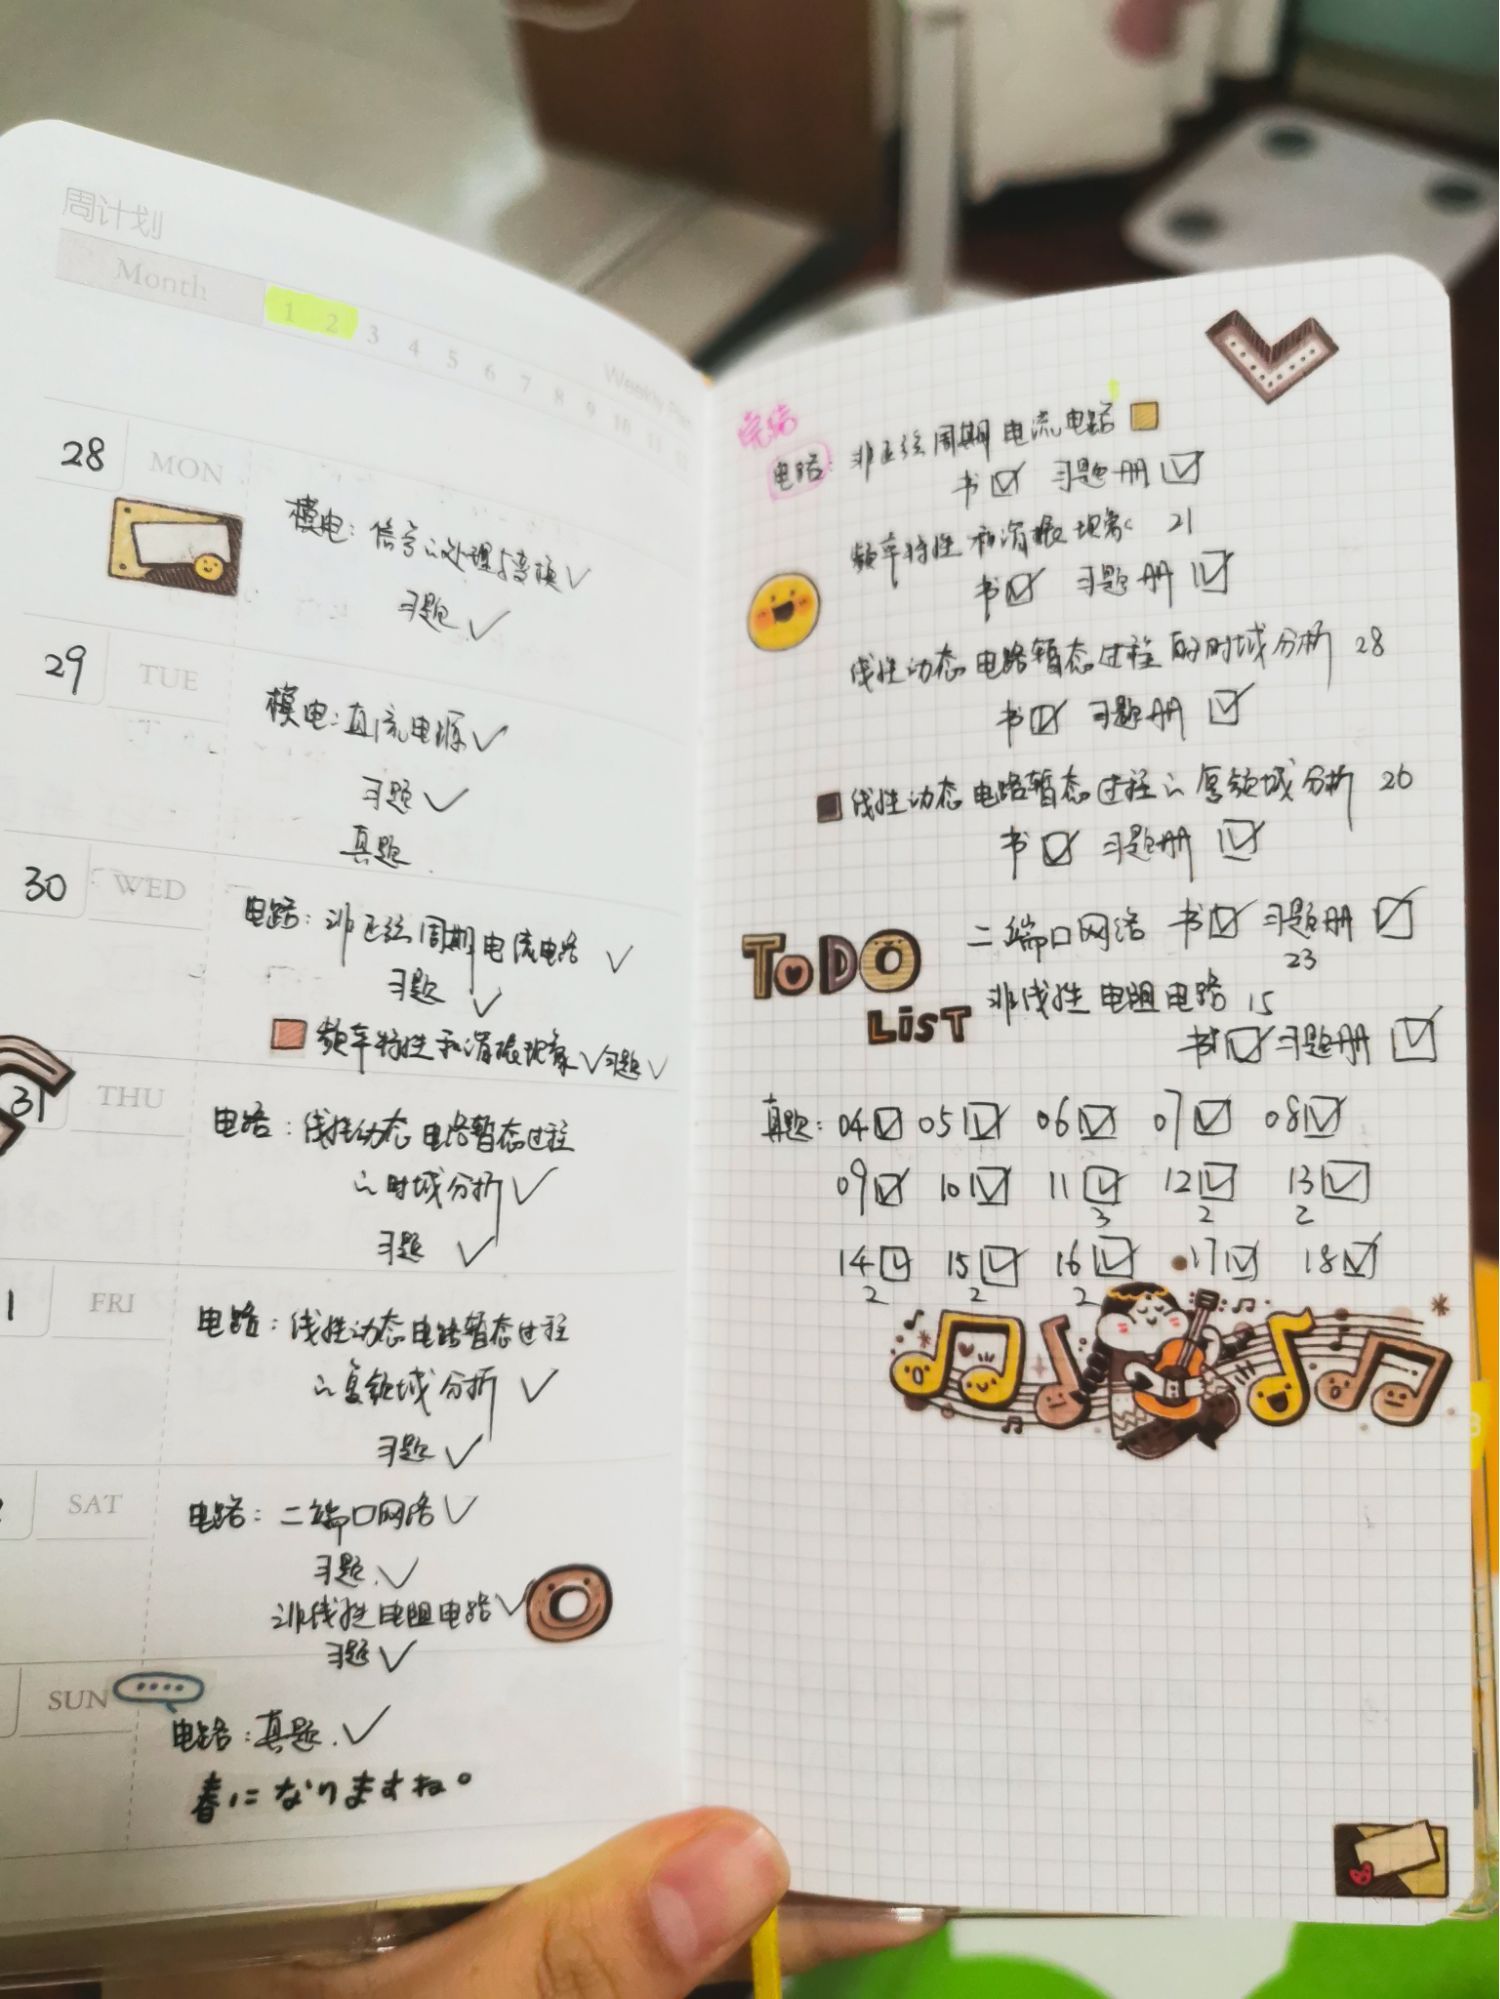 周计划
Month 1 2 3 4 5 6 7 8 9 10 11 12
Weekly Plan
28 MON
模电：信号的处理与变换✓
习题✓
29 TUE
模电：直流电源✓
习题✓
真题
30 WED
电路：非正弦周期电流电路 ✓
习题✓
频率特性和谐振现象✓习题✓
31 THU
电路：线性动态电路暂态过程
的时域分析✓
习题 ✓
1 FRI
电路：线性动态电路暂态过程
的复频域分析 ✓
习题✓
SAT
电路：二端口网络✓
习题.✓
非线性电阻电路✓
习题✓
SUN
电路：真题.✓
春になりますね。
完结
电路：非正弦周期电流电路
书☑ 习题册☑
频率特性和谐振现象 21
书☑ 习题册☑
线性动态电路暂态过程的时域分析 28
书☑ 习题册 ☑
线性动态电路暂态过程的复频域分析 26
书☑ 习题册 ☑
二端口网络 书☑ 习题册 ☑
23
ToDO
LiST
非线性电阻电路 15
书☑ 习题册 ☑
真题：04☑ 05☑ 06☑ 07☑ 08☑
09☑ 10☑ 11☑ 12☑ 13☑
3 2 2
14☑ 15☑ 16☑ 17☑ 18☑
2 2 2